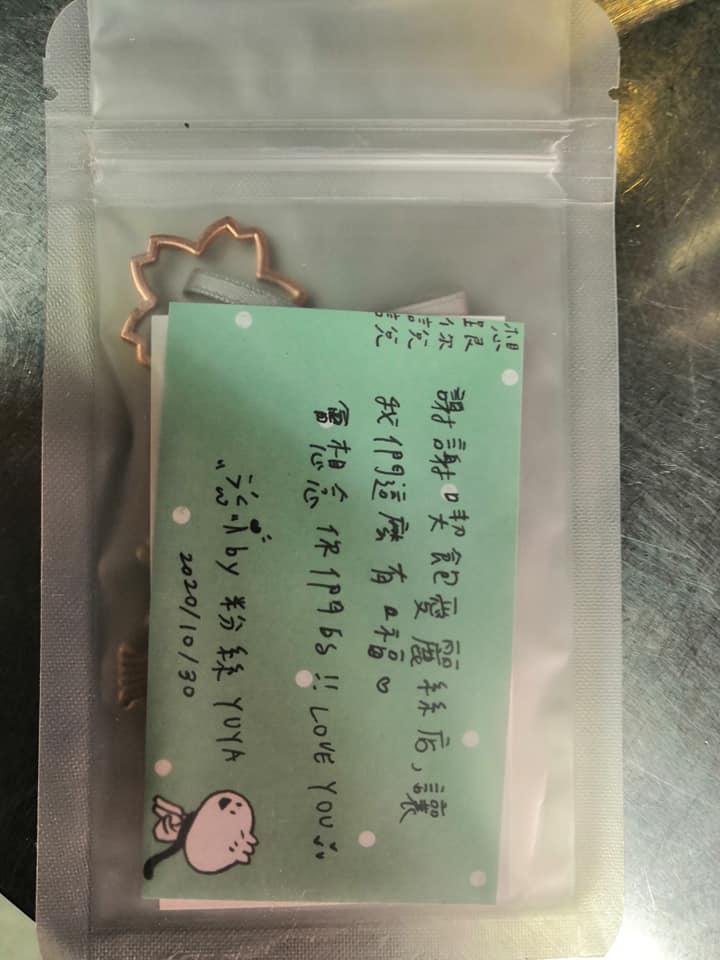 想跟你說說
謝謝喫飽愛麗絲店,讓
我們這麼有口福♡
會想念你們的!! LOVE YOU
by 粉絲 YUYA
2020/10/30